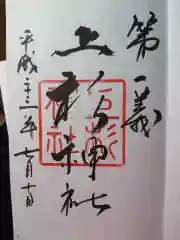 第一義
上杉神社
平成二十二年七月十日